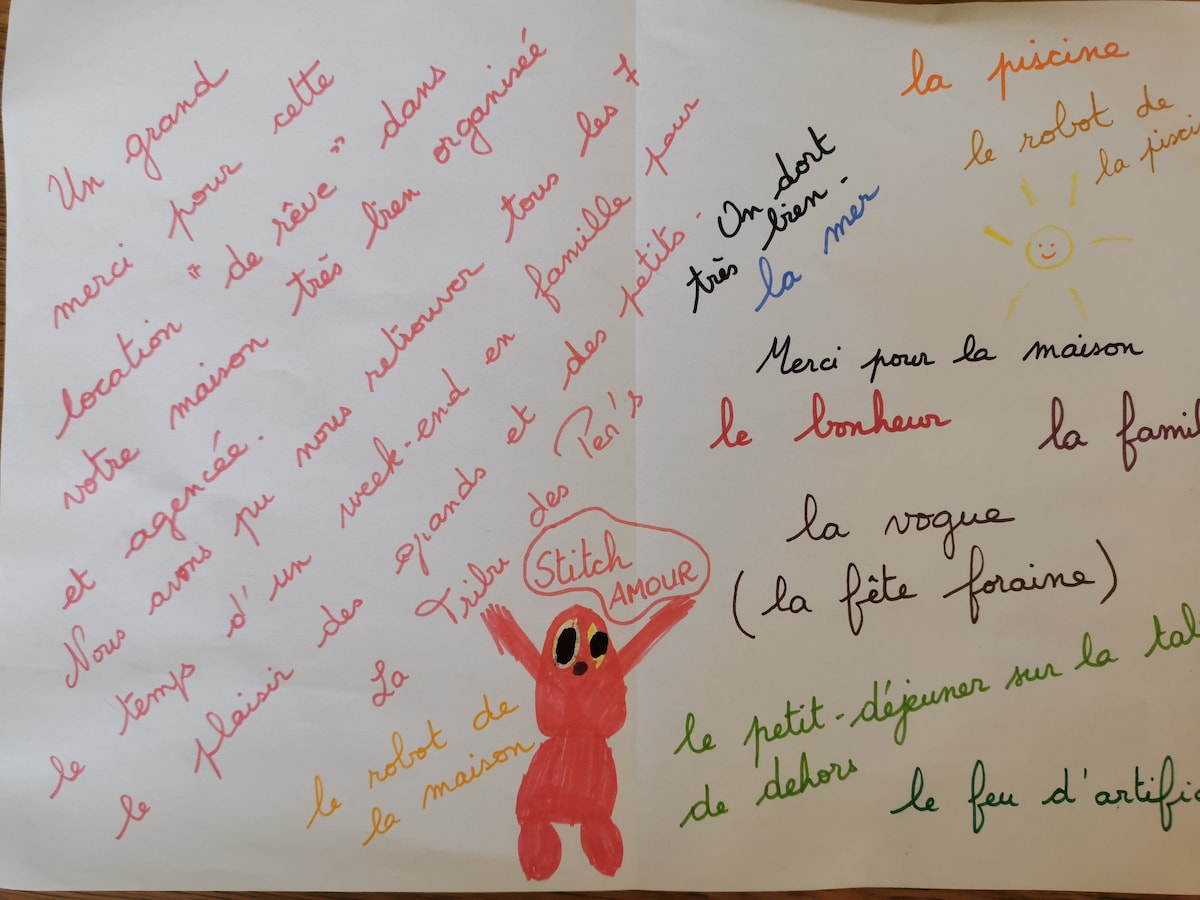 Un grand
merci pour cette
location " de rêve " dans
votre maison très bien organiséé
et agencéé.
Nous avons pu nous retrouver tous les 7
le temps d'un week-end en famille pour
le plaisir des grands et des petits.
La Tribu des
Stitch
AMOUR
le robot de
la maison
la piscine
le robot de
la pisci
On dort
très bien.
la mer
Merci pour la maison
le bonheur
la famil
la vogue
(la fête foraine)
le petit-déjeuner sur la tal
de dehors
le feu d'artific